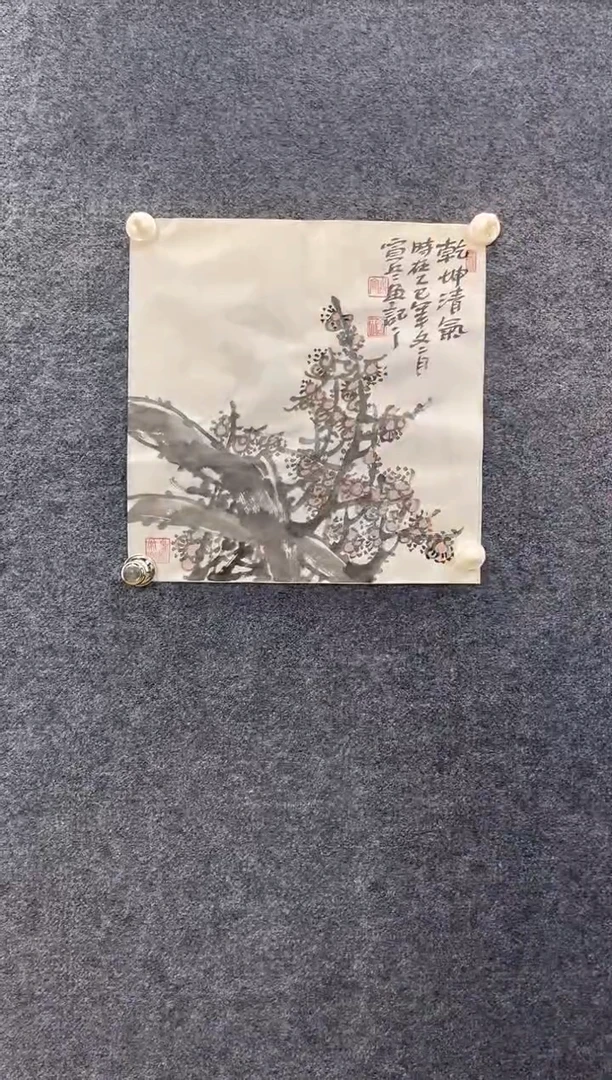 乾坤清氣
時在乙巳年冬二月
宣兵畫記